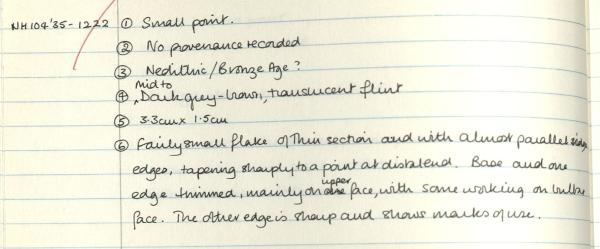 NH104'85-1222 ① Small point.
② No provenance recorded
③ Neolithic/Bronze Age?
mid to
④ Dark grey-brown, translucent flint
⑤ 3.3cm x 1.5cm
⑥ Fairly small flake of thin section and with almost parallel
edges, tapering sharply to a point at distal end. Base and one
edge trimmed, mainly on upper face, with some working on bulbar
face. The other edge is sharp and shows marks of use.